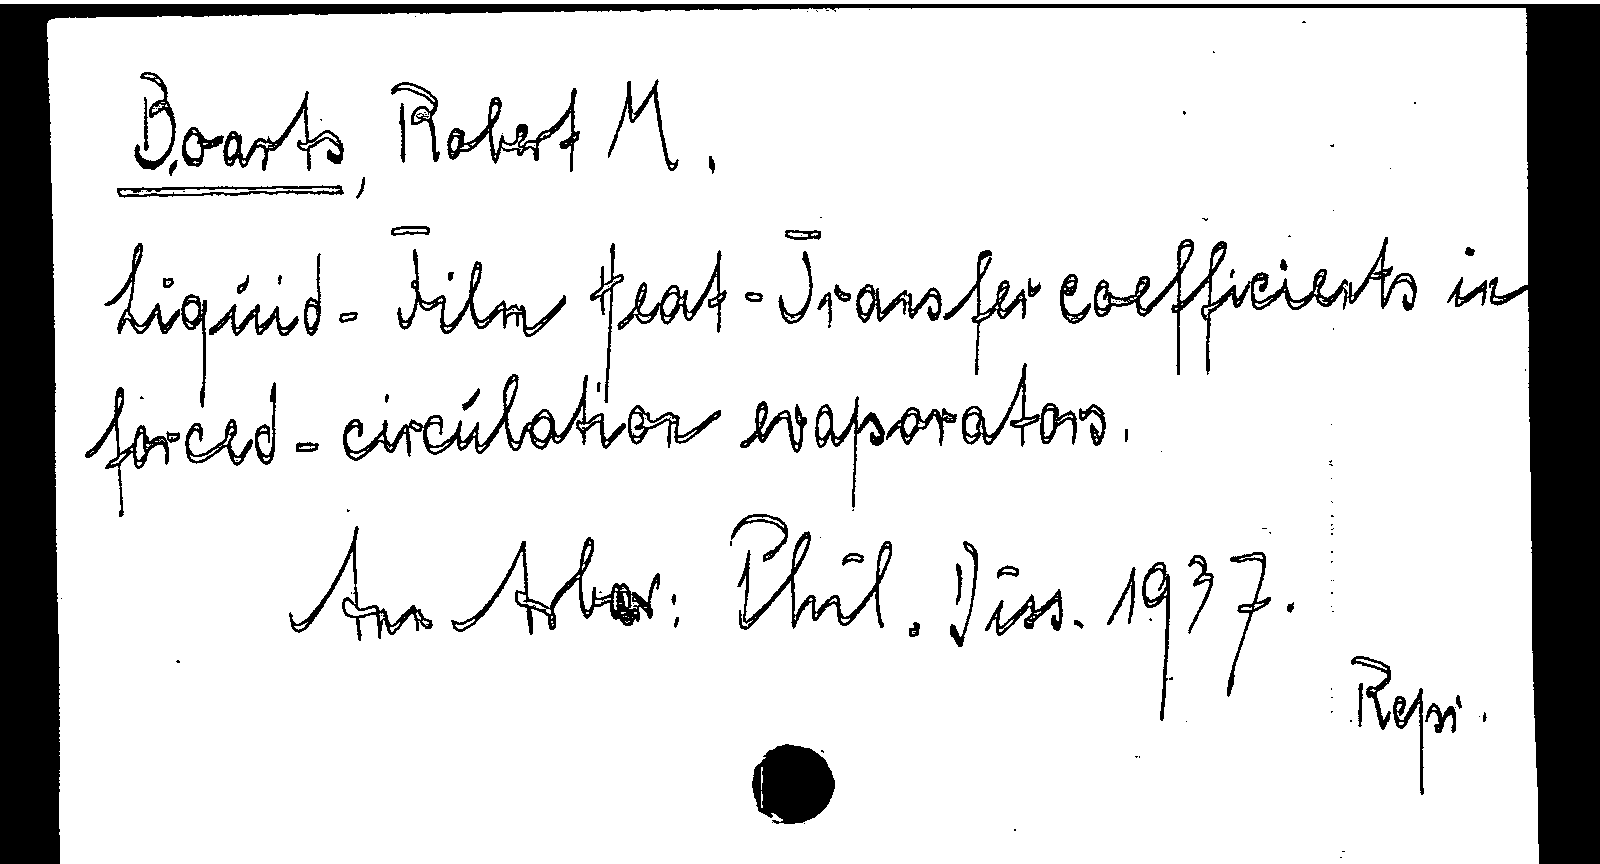 Boarts, Robert M.
Liquid-Film Heat-Transfer coefficients in
forced-circulation evaporators.
Ann Arbor: Phil. Diss. 1937.